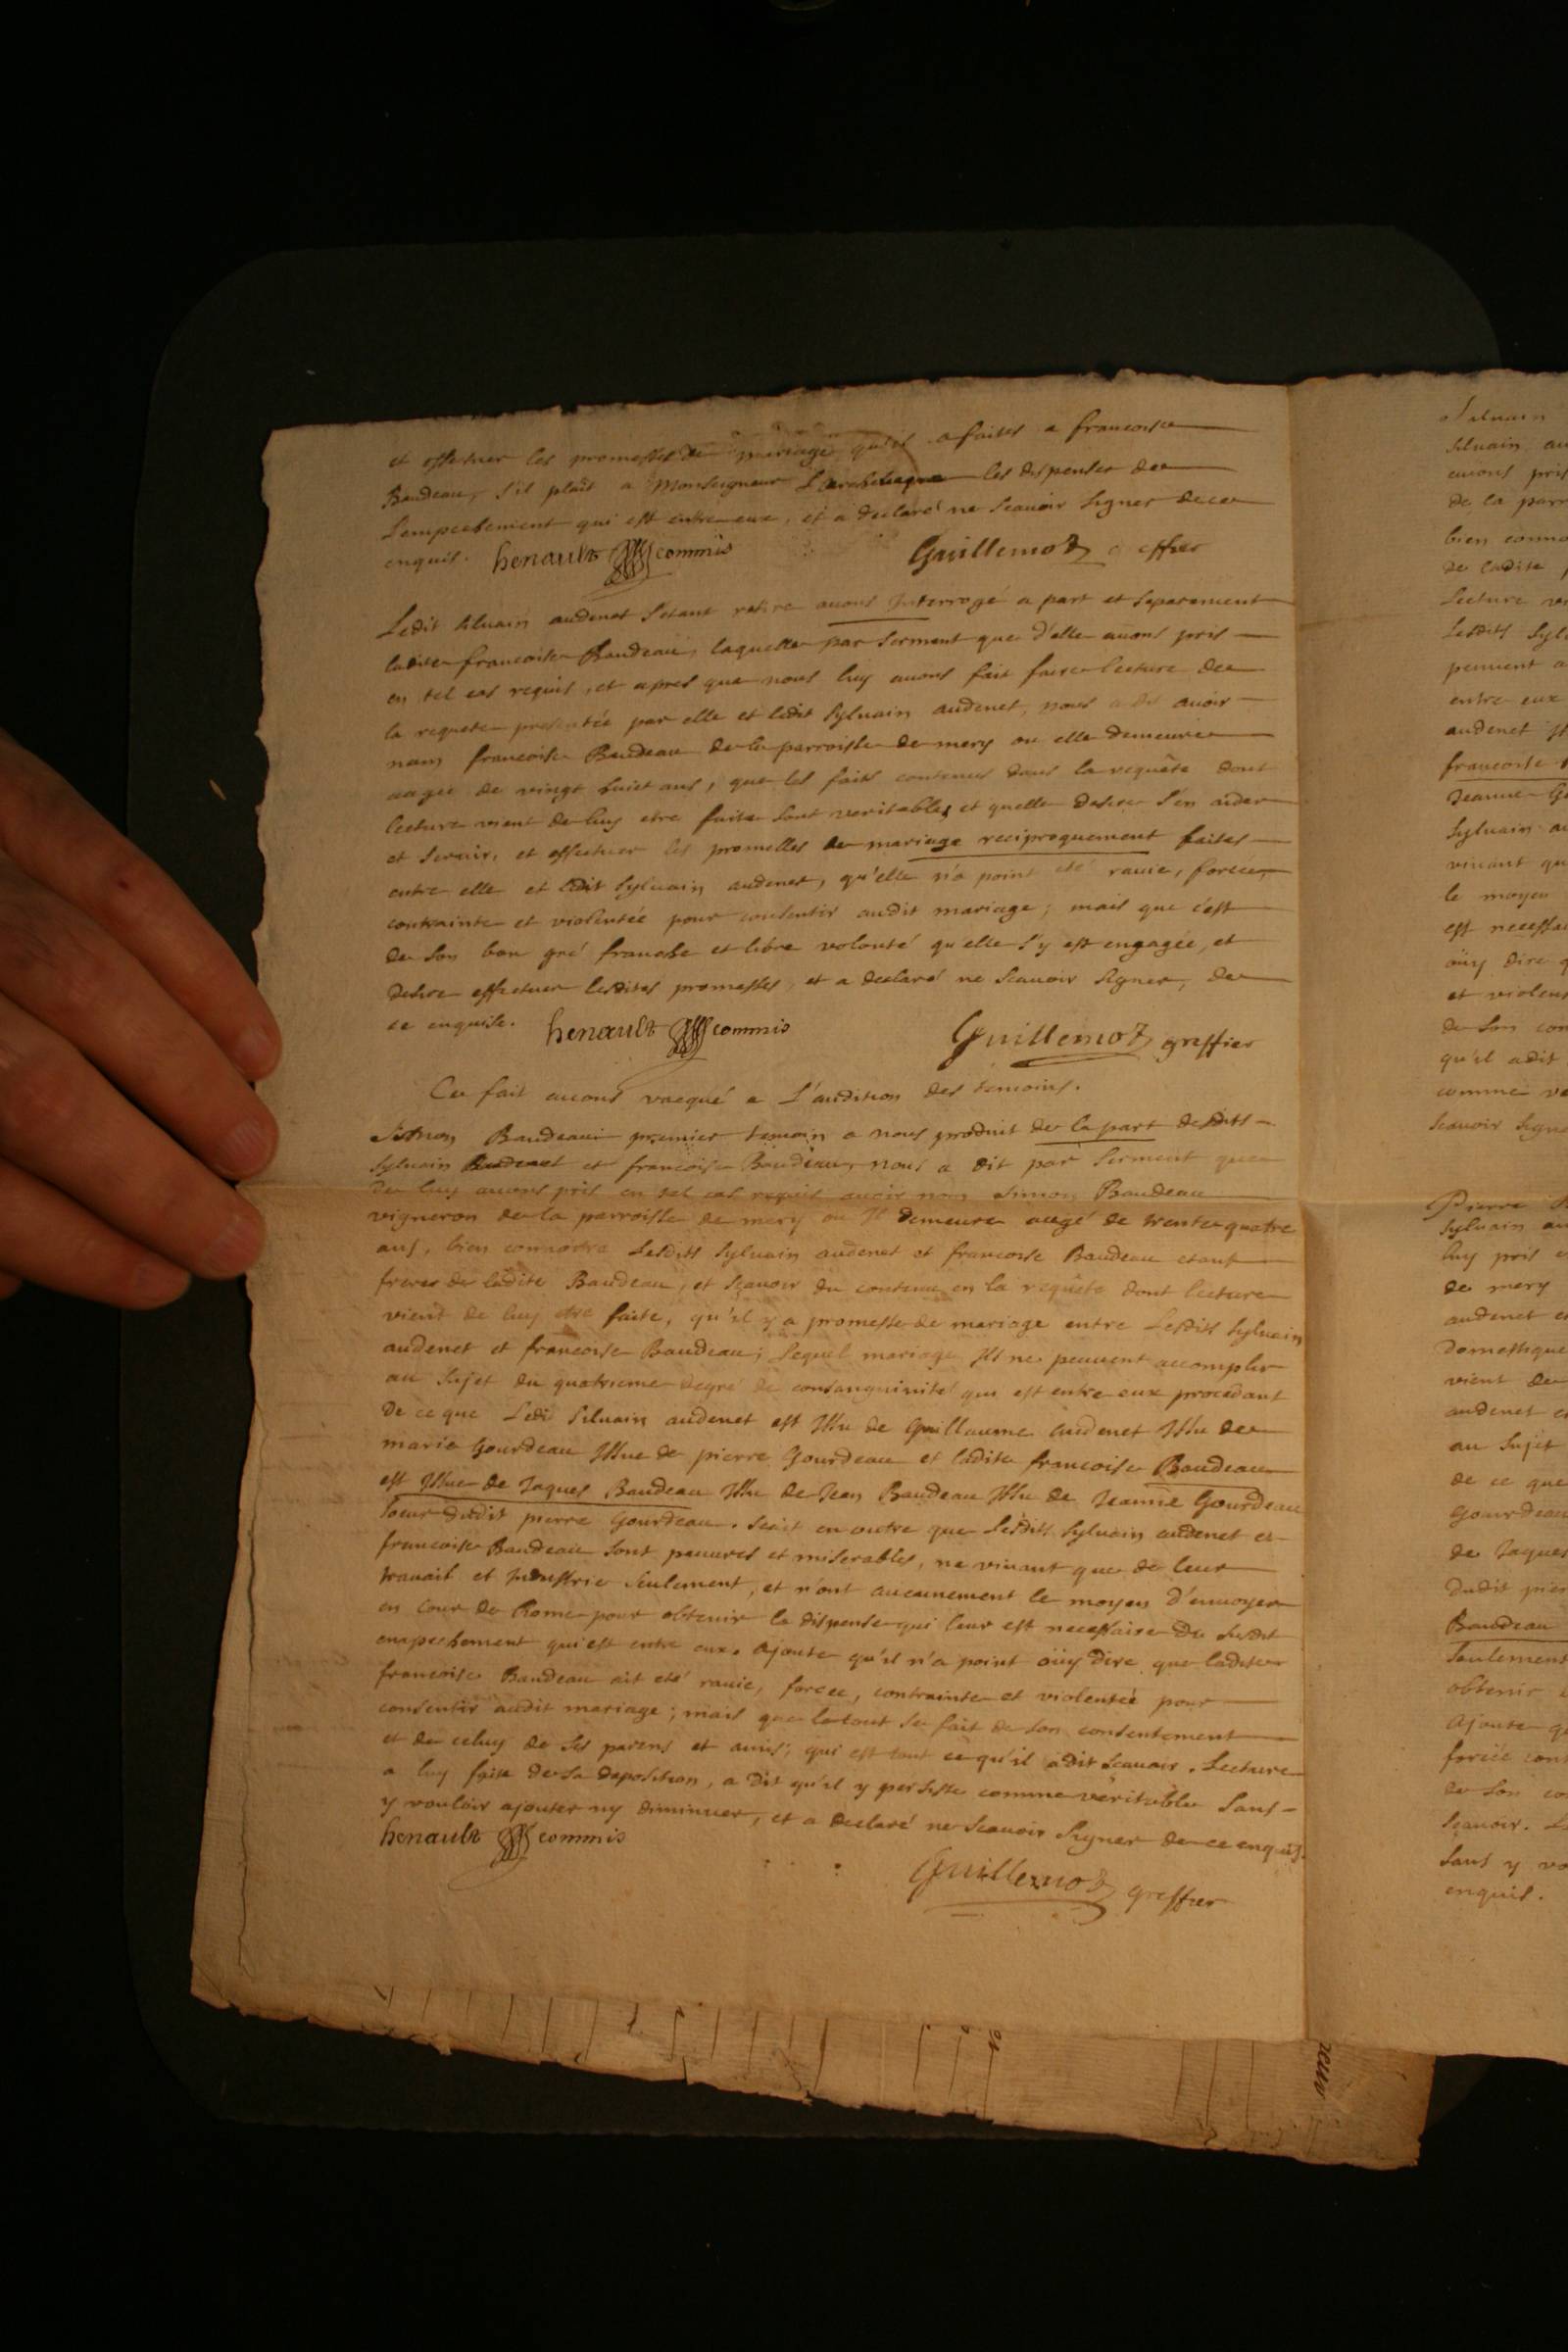 et effectuer les promesses de mariage qu'il a faites a francoise
Baudeau, s'il plait a Monseigneur L'archeveque les dispenser de
L'empechement qui est entre eux, et a declaré ne scauoir signer de ce
enquis. henault commis Guillemot greffier
Ledit siluain audenet s'etant retire auons Interrogé a part et separement
ladite francoise Baudeau, laquelle par serment que d'elle auons pris
en tel cas requis, et apres que nous luy auons fait faire lecture de
la requete presentée par elle et ledit Sylvain audenet, nous a dit auoir
nom francoise Baudeau de la parroisse de mery ou elle demeure
aagée de vingt huict ans, que les faits contenus dans la requête dont
lecture vient de luy etre faite sont veritables et quelle desire s'en aider
et seruir, et effectuer les promesses de mariage reciproquement faites
entre elle et ledit Sylvain audenet, qu'elle n'a point été rauie, forcée,
contrainte et violentée pour consentir audit mariage; mais que c'est
de son bon gré franche et libre volonté qu'elle s'y est engagée, et
desire effectuer lesdites promesses, et a declaré ne scauoir signer, de
ce enquise. henault commis Guillemot greffier
Ce fait auons vacqué a L'audition des temoins.
Simon Baudeau premier temoin a nous produit de la part desdits
Sylvain Audenet et francoise Baudeau, nous a dit par serment que
de luy auons pris en tel cas requis auoir nom Simon Baudeau
vigneron de la parroisse de mery ou Il demeure aagé de trente quatre
ans, bien connoitre Lesdits Sylvain audenet et francoise Baudeau etant
frere de ladite Baudeau, et sçauoir du contenu en la requête dont lecture
vient de luy etre faite, qu'il y a promesse de mariage entre Lesdits Sylvain
audenet et francoise Baudeau; Lequel mariage Ils ne peuuent accomplir
au sujet du quatrieme degré de consanguinité qui est entre eux procedant
De ce que Ledit Siluain audenet est Issu de Guillaume Audenet Issu de
marie Gourdeau Issue de pierre Gourdeau et ladite francoise Baudeau
est Issue de Jaques Baudeau Issu de Jean Baudeau Issu de Jeanne Gourdeau
soeur dudit pierre Gourdeau. Scait en outre que Lesdits Sylvain audenet et
francoise Baudeau sont pauures et miserables, ne viuant que de leur
trauail et Industrie seulement, et n'ont aucunement le moyen d'enuoyer
en Cour de Rome pour obtenir la dispense qui leur est necessaire du susdit
empechement qui est entre eux. Ajoute qu'il n'a point oüy dire que ladite
francoise Baudeau ait eté rauie, forcee, contrainte et violentée pour
consentir audit mariage; mais que le tout se fait de son consentement
et de celuy de ses parens et amis; qui est tout ce qu'il a dit scauoir. Lecture
a luy faite de sa deposition, a dit qu'il y persiste comme veritable sans
y vouloir ajouter ny diminuer, et a declaré ne scauoir signer de ce enquis.
henault commis
Guillemot greffier
Siluain
de la parr
de ladite
Lecture
Lesdits Syl
peuuent
entre eux
audenet
francoise
Jeanne
Sylvain
viuant que
le moyen
est necessai
oüy dire
et violen
de son con
qu'il a dit
comme ve
scauoir signe
Pierre
Sylvain au
luy pris
de mery
audenet et
Domestique
vient de
audenet
au sujet
de ce que
Gourdeau
de Jaques
dudit pier
Baudeau
seulement
obtenir
Ajoute
forcée cont
de son co
sçauoir.
sans y vo
enquis.